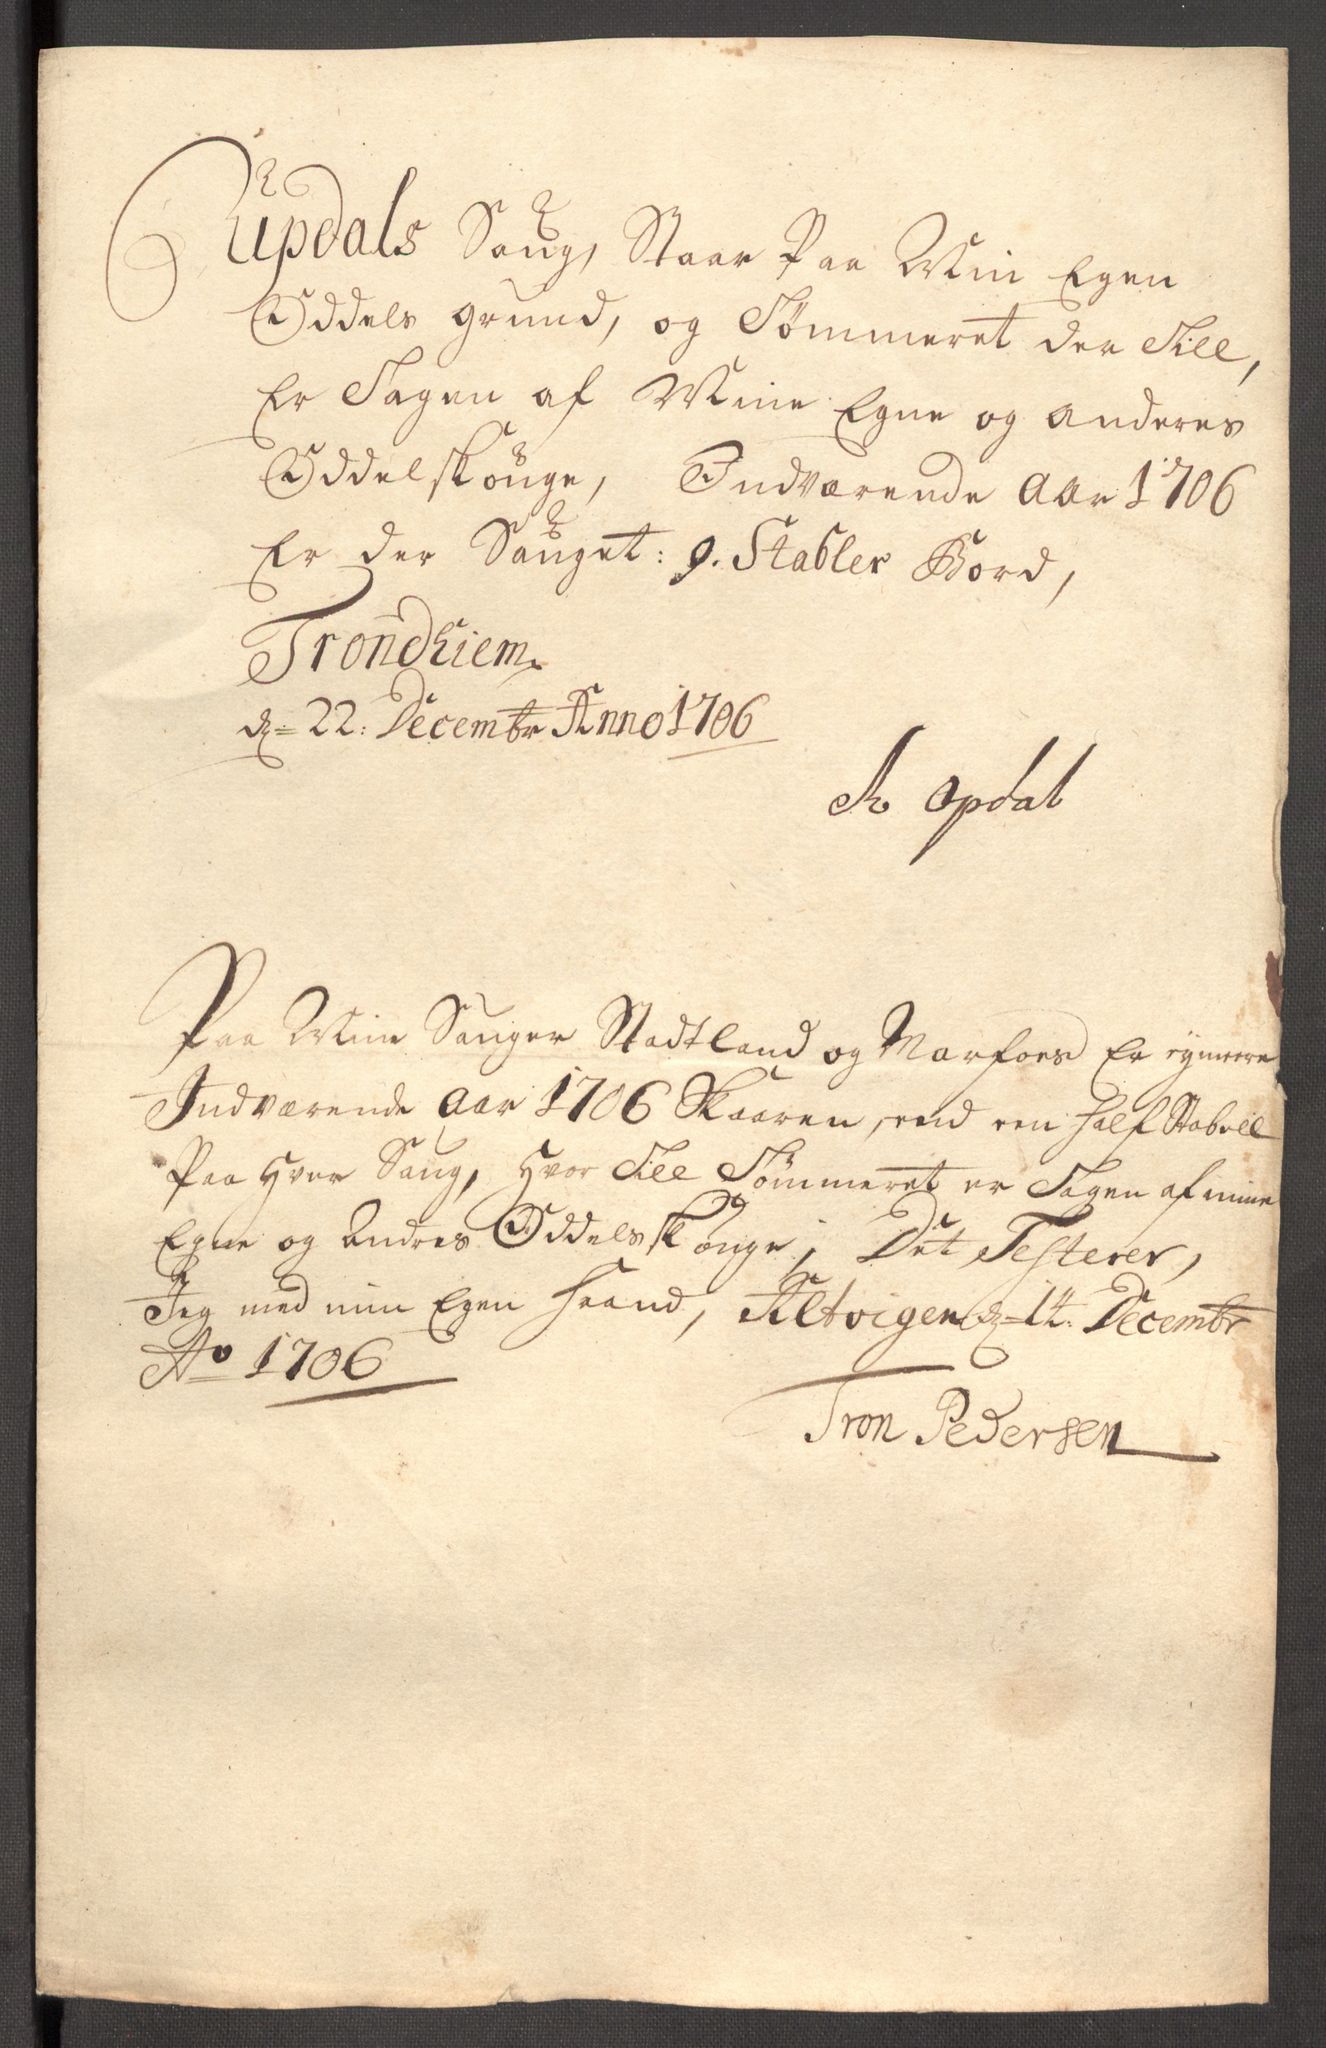 Updals Saug, Staar Paa Min Egen
Oddels grund, og Tömmeret der Till,
Er Tagen af Mine Egne og anderes
Oddelskouge, Indværende Aar 1706
Er der Sauget: 9. Stabler Bord,
Trondhiem
d: 22: Decembr Anno 1706
Opdal
Paa Mine Sauger Stadtland og Marfors Er
Indværende Aar 1706 Skaaren, end een half Stabell
Paa Hver Saug, Hvor Till Tömmeret er Tagen af mine
Egne og Andres Oddelsskouge, Det Testerer,
Jeg med min Egen Haand, Altvigen d: 14. Decembr
Ao 1706
Tron Pedersen